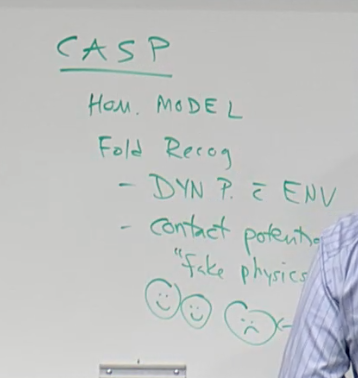 CASP
Hom. MODEL
Fold Recog
- DYN P. c̄ ENV
- contact potentia
"fake physics